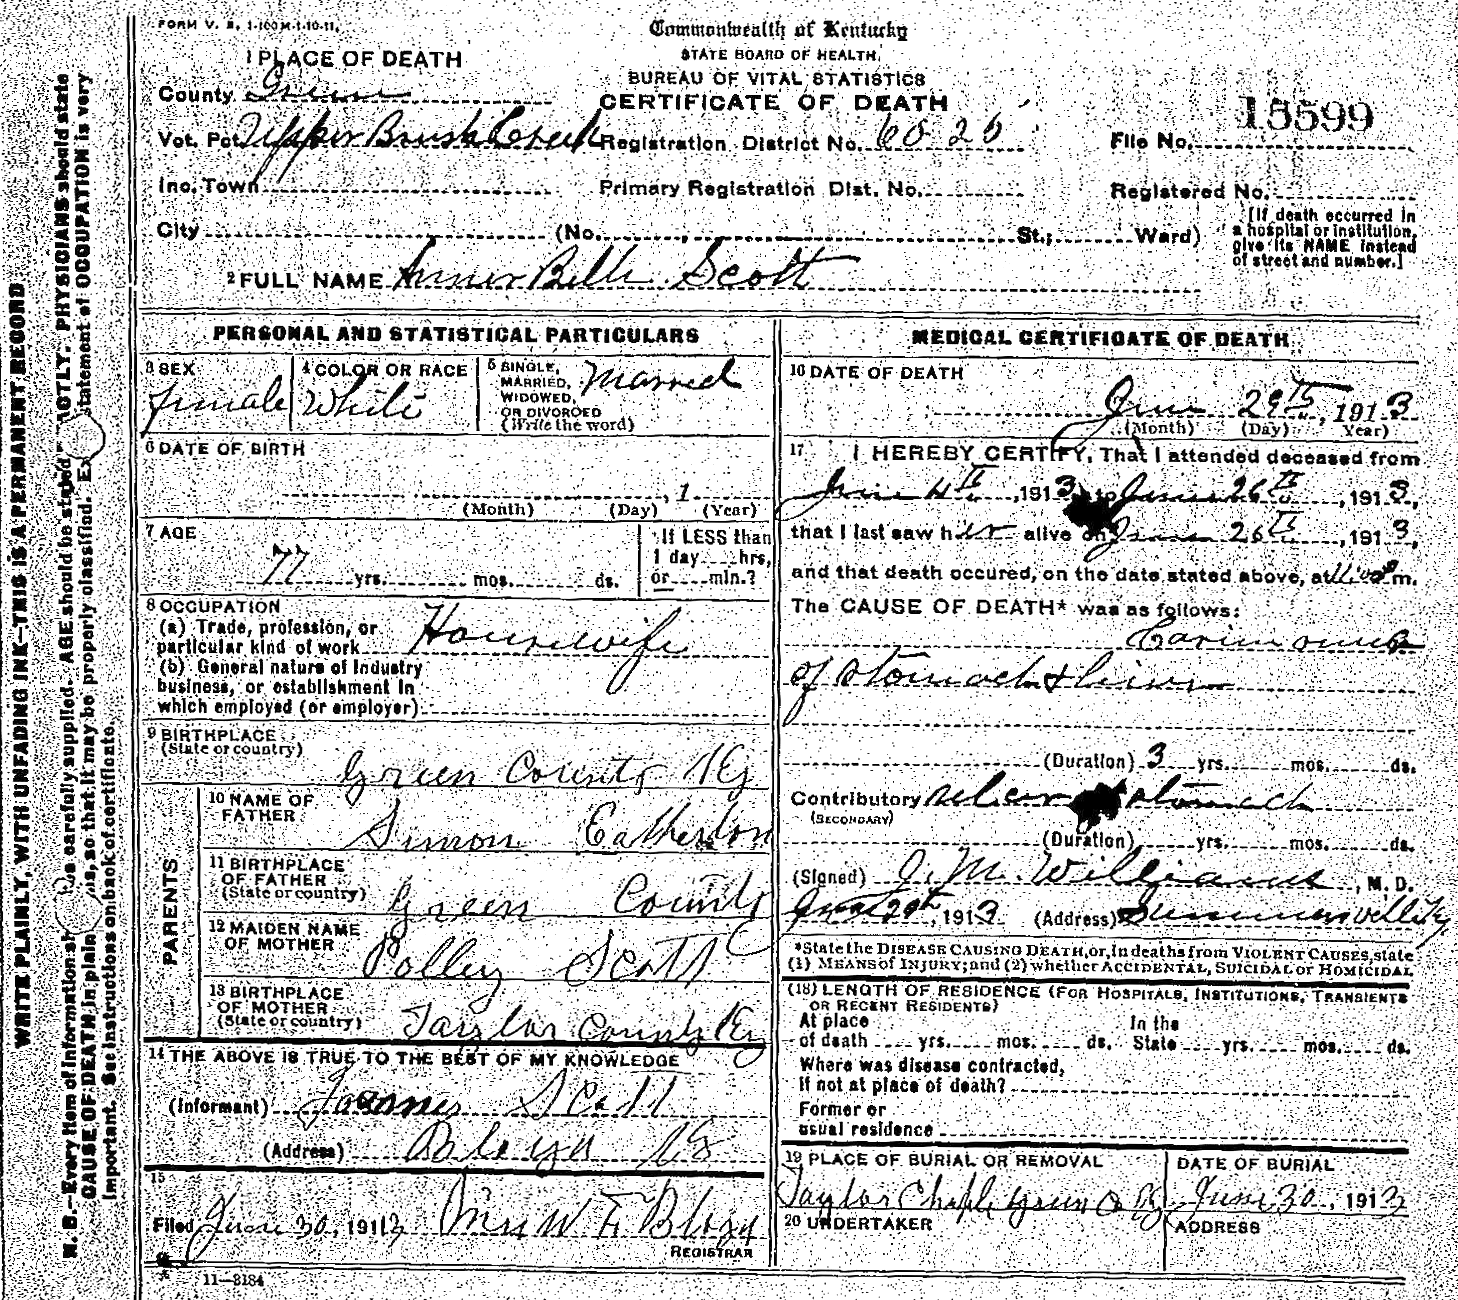 FORM V. S. 1-100M-1-10-11.
Commonwealth of Kentucky
STATE BOARD OF HEALTH,
BUREAU OF VITAL STATISTICS
CERTIFICATE OF DEATH
1 PLACE OF DEATH
County Green
Vot. Pct. Upper Brush Creek Registration District No. 6020
File No. 15599
Inc. Town Primary Registration Dist. No. Registered No.
City (No. , St.; Ward)
[If death occurred in
a hospital or institution,
give its NAME instead
of street and number.]
2 FULL NAME Anner Belle Scott
PERSONAL AND STATISTICAL PARTICULARS
3 SEX female
4 COLOR OR RACE White
5 SINGLE,
MARRIED,
WIDOWED,
OR DIVORCED
(Write the word)
Married
6 DATE OF BIRTH
, 1
(Month) (Day) (Year)
7 AGE
77 yrs. mos. ds.
If LESS than
1 day hrs,
or min.?
8 OCCUPATION
(a) Trade, profession, or
particular kind of work Housewife
(b) General nature of industry
business, or establishment in
which employed (or employer)
9 BIRTHPLACE
(State or country)
Green County Ky
PARENTS
10 NAME OF
FATHER
Simon Eatherton
11 BIRTHPLACE
OF FATHER
(State or country)
Green County
12 MAIDEN NAME
OF MOTHER
Polley Scott
13 BIRTHPLACE
OF MOTHER
(State or country)
Taylor County Ky
14 THE ABOVE IS TRUE TO THE BEST OF MY KNOWLEDGE
(Informant) Scott
(Address) Bloyd Ky
15
Filed June 30, 1913 W F Bloyd
REGISTRAR
11—3184
MEDICAL CERTIFICATE OF DEATH
16 DATE OF DEATH
June 29th, 1913
(Month) (Day) Year)
17 I HEREBY CERTIFY, That I attended deceased from
June 4th, 1913, to June 26th, 1913,
that I last saw her alive on June 26th, 1913,
and that death occured, on the date stated above, at m.
The CAUSE OF DEATH* was as follows:
Carcinoma
of stomach & liver
(Duration) 3 yrs. mos. ds.
Contributory ulcer stomach
(SECONDARY)
(Duration) yrs. mos. ds.
(Signed) J. M. Williams, M. D.
, 1913 (Address) Summersville Ky
*State the DISEASE CAUSING DEATH, or, in deaths from VIOLENT CAUSES, state
(1) MEANS of INJURY; and (2) whether ACCIDENTAL, SUICIDAL or HOMICIDAL
(18) LENGTH OF RESIDENCE (FOR HOSPITALS, INSTITUTIONS, TRANSIENTS
OR RECENT RESIDENTS)
At place In the
of death yrs. mos. ds. State yrs. mos. ds.
Where was disease contracted,
If not at place of death?
Former or
usual residence
19 PLACE OF BURIAL OR REMOVAL DATE OF BURIAL
Taylor Chaple Green Co Ky June 30, 1913
20 UNDERTAKER ADDRESS
WRITE PLAINLY, WITH UNFADING INK—THIS IS A PERMANENT RECORD
N. B.—Every item of information should be carefully supplied. AGE should be stated EXACTLY. PHYSICIANS should state
CAUSE OF DEATH in plain terms, so that it may be properly classified. Exact statement of OCCUPATION is very
important. See instructions on back of certificate.